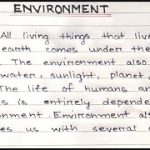 ENVIRONMENT
All living things that live
earth comes under the
. The environment also
water, sunlight, planet,
The life of humans an
s is entirely depende
onment. Environment al
es us with several